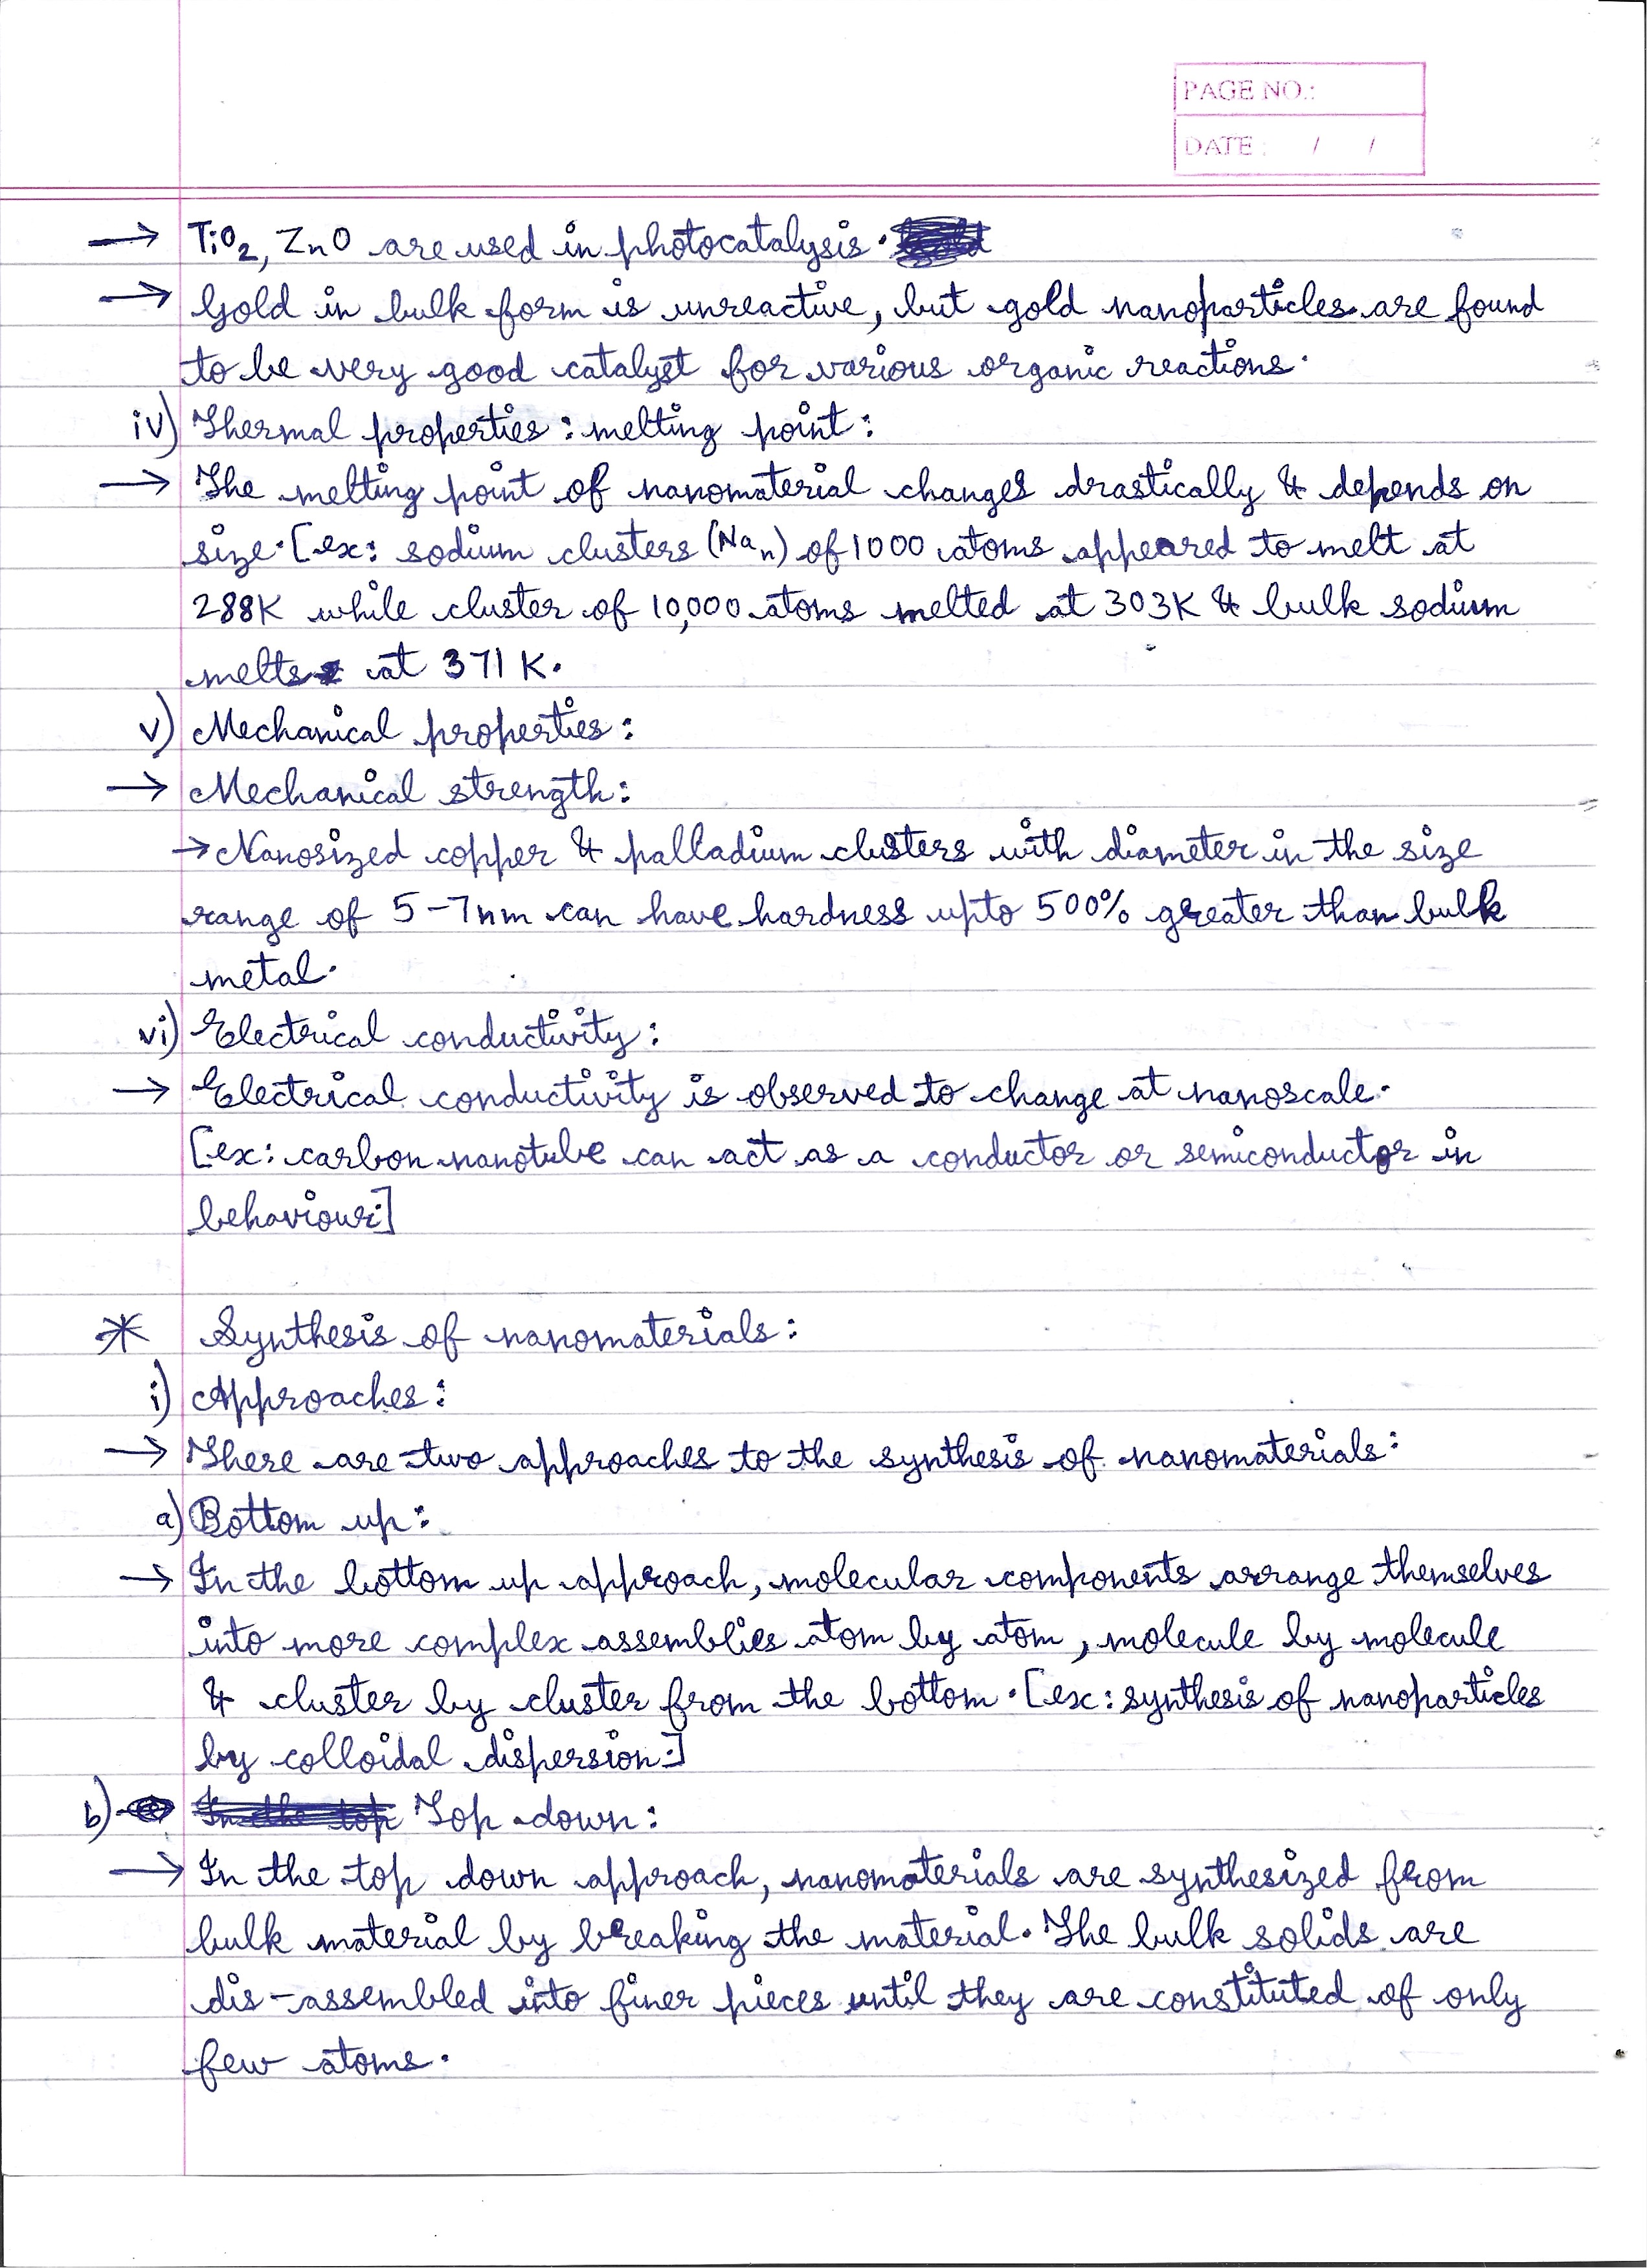 PAGE NO.:
DATE : / /
→ TiO₂, ZnO are used in photocatalysis.
→ Gold in bulk form is unreactive, but gold nanoparticles are found
to be very good catalyst for various organic reactions.
iv) Thermal properties: melting point:
→ The melting point of nanomaterial changes drastically & depends on
size. [ex: sodium clusters (Naₙ) of 1000 atoms appeared to melt at
288K while cluster of 10,000 atoms melted at 303K & bulk sodium
melts at 371 K.
v) Mechanical properties:
→ Mechanical strength:
→ Nanosized copper & palladium clusters with diameter in the size
range of 5-7nm can have hardness upto 500% greater than bulk
metal.
vi) Electrical conductivity:
→ Electrical conductivity is observed to change at nanoscale.
[ex: carbon nanotube can act as a conductor or semiconductor in
behaviour.]
* Synthesis of nanomaterials:
i) Approaches:
→ There are two approaches to the synthesis of nanomaterials:
a) Bottom up:
→ In the bottom up approach, molecular components arrange themselves
into more complex assemblies atom by atom, molecule by molecule
& cluster by cluster from the bottom. [ex: synthesis of nanoparticles
by colloidal dispersion.]
b) In the top Top down:
→ In the top down approach, nanomaterials are synthesized from
bulk material by breaking the material. The bulk solids are
dis-assembled into finer pieces until they are constituted of only
few atoms.